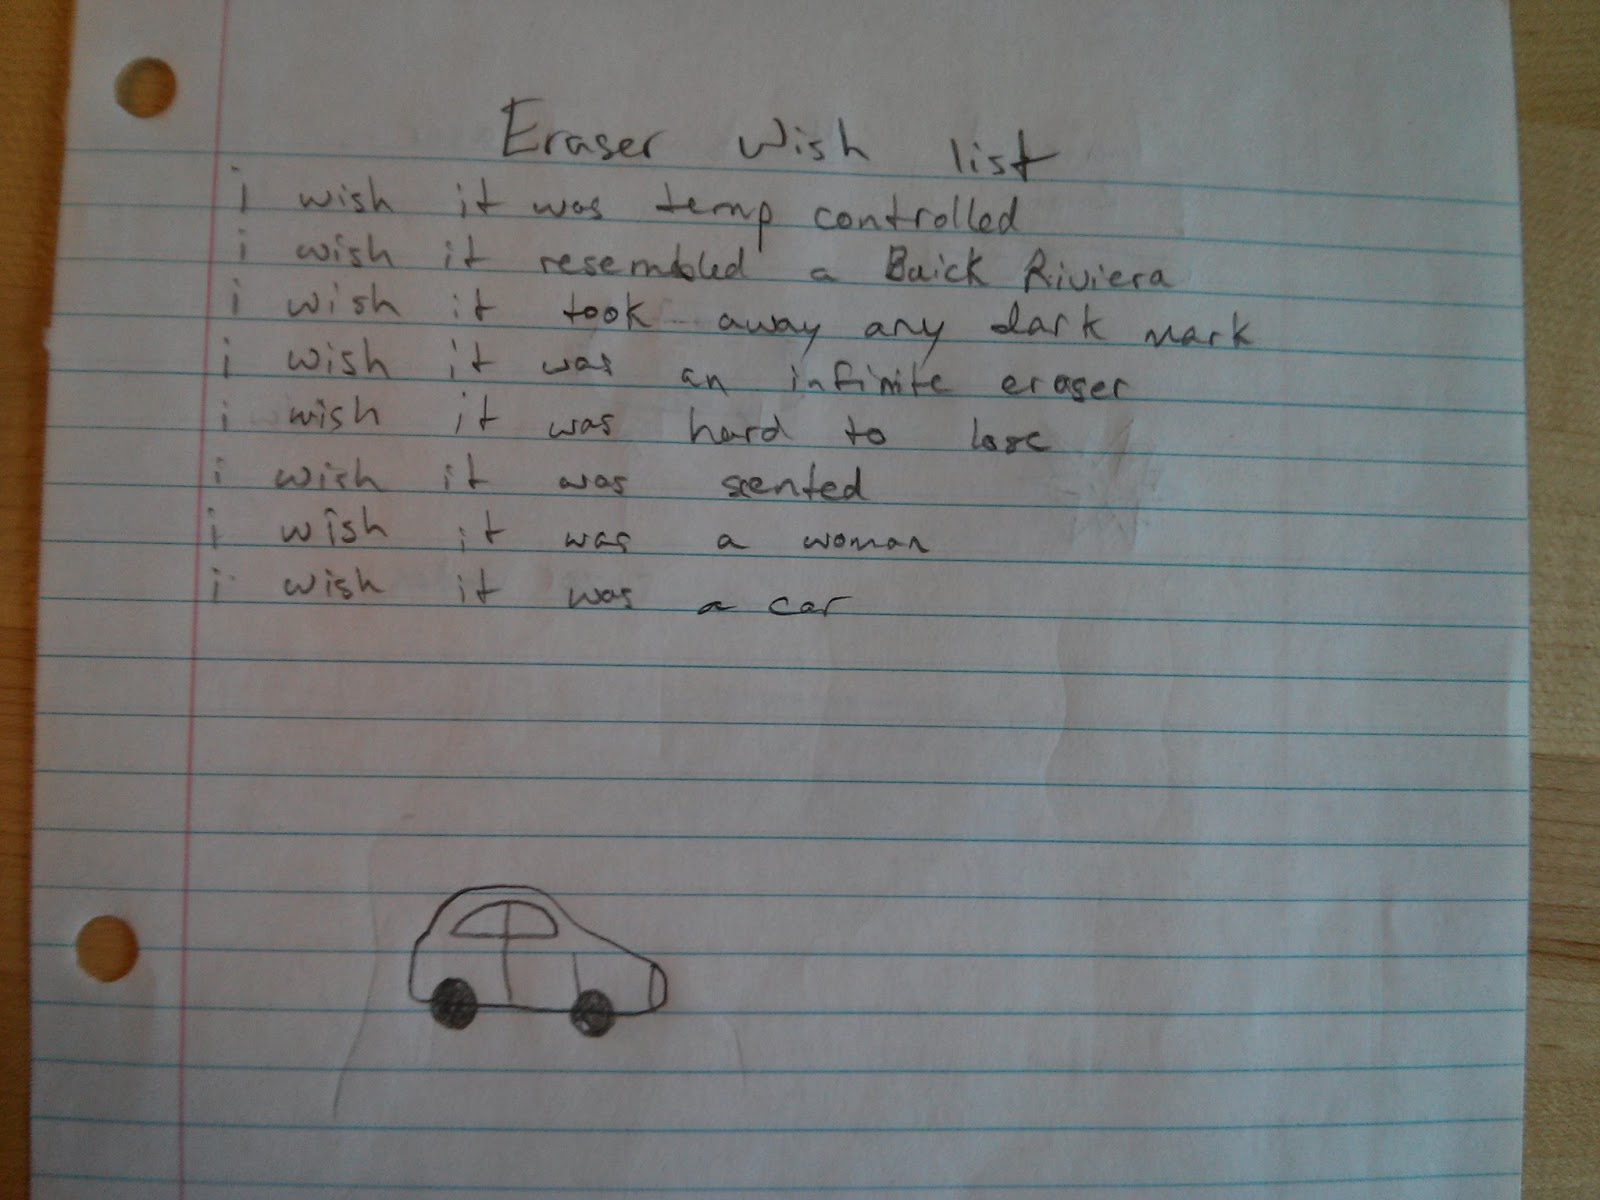 Eraser Wish list
i wish it was temp controlled
i wish it resembled a Buick Riviera
i wish it took away any dark mark
i wish it was an infinite eraser
i wish it was hard to lose
i wish it was scented
i wish it was a woman
i wish it was a car